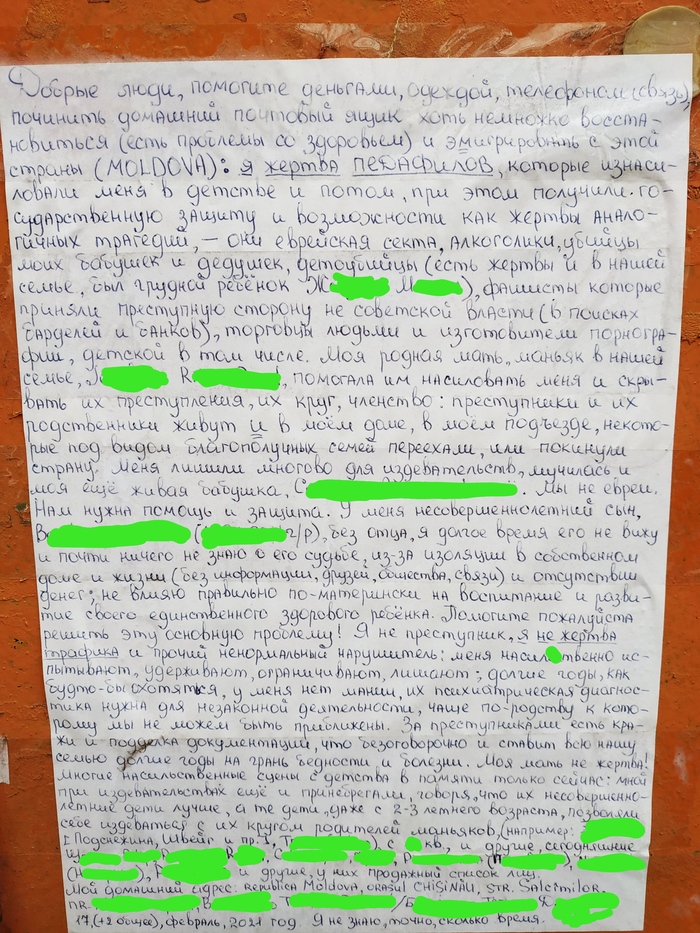 Добрые люди, помогите деньгами, одеждой, телефоном (связь),
починить домашний почтовый ящик хоть немножко восста-
новиться (есть проблемы со здоровьем) и эмигрировать с этой
страны (MOLDOVA): я жертва ПЕДАФИЛОВ, которые изнаси-
ловали меня в детстве и потом, при этом получили го-
сударственную защиту и возможности как жертвы анало-
гичных трагедий, – они еврейская секта, алкоголики, убийцы
моих бабушек и дедушек, детоубийцы (есть жертвы и в нашей
семье, был грудной ребёнок Ж М ), фашисты которые
приняли преступную сторону не советской власти (в поисках
барделей и банков), торговцы людьми и изготовители порногра-
фии, детской в том числе. Моя родная мать, маньяк в нашей
семье, R , помогала им насиловать меня и скры-
вать их преступления, их круг, членство: преступники и их
родственники живут и в моём доме, в моём подъезде, некото-
рые под видом благополучных семей переехали, или покинули
страну. Меня лишили многово для издевательств, мучилась и
моя ещё живая бабушка, С . Мы не евреи.
Нам нужна помощь и защита. У меня несовершеннолетний сын,
В ( г/р), без отца, я долгое время его не вижу
и почти ничего не знаю о его судьбе, из-за изоляции в собственном
доме и жизни (без информации, друзей, общества, связи) и отсутствии
денег; не влияю правильно по-матерински на воспитание и разви-
тие своего единственного здорового ребёнка. Помогите пожалуйста
решить эту основную проблему! Я не преступник, я не жертва
трафика и прочий ненормальный нарушитель: меня насил ственно ис-
пытывают, удерживают, ограничивают, лишают; долгие годы, как
будто-бы охотятся, у меня нет мании, их психиатрическая диагнос-
тика нужна для незаконной деятельности, чаще по-родству к кото-
рому мы не можем быть приближены. За преступниками есть кра-
жи и подделка документации, что безоговорочно и ставит всю нашу
семью долгие годы на грань бедности и болезни. Моя мать не жертва!
Многие насильственные сцены с детства в памяти только сейчас: мной
при издевательствах ещё и принебрегали, говоря, что их несовершенно-
летние дети лучше, а те дети, даже с 2-3 летнего возраста, позволяли
себе издеваться с их кругом родителей маньяков, (например:
Подснежина, Швейг и пр. , Т ), с кв, и другие, сегодняшние
R , С , Р
( ), и другие, у них продажный список лиц.
Мой домашний адрес: Republica Moldova, orașul CHIȘINĂU, STR. Salcîmilor.
NR.
17, (+2 общее), февраль, 2021 год. Я не знаю, точно, сколько время.